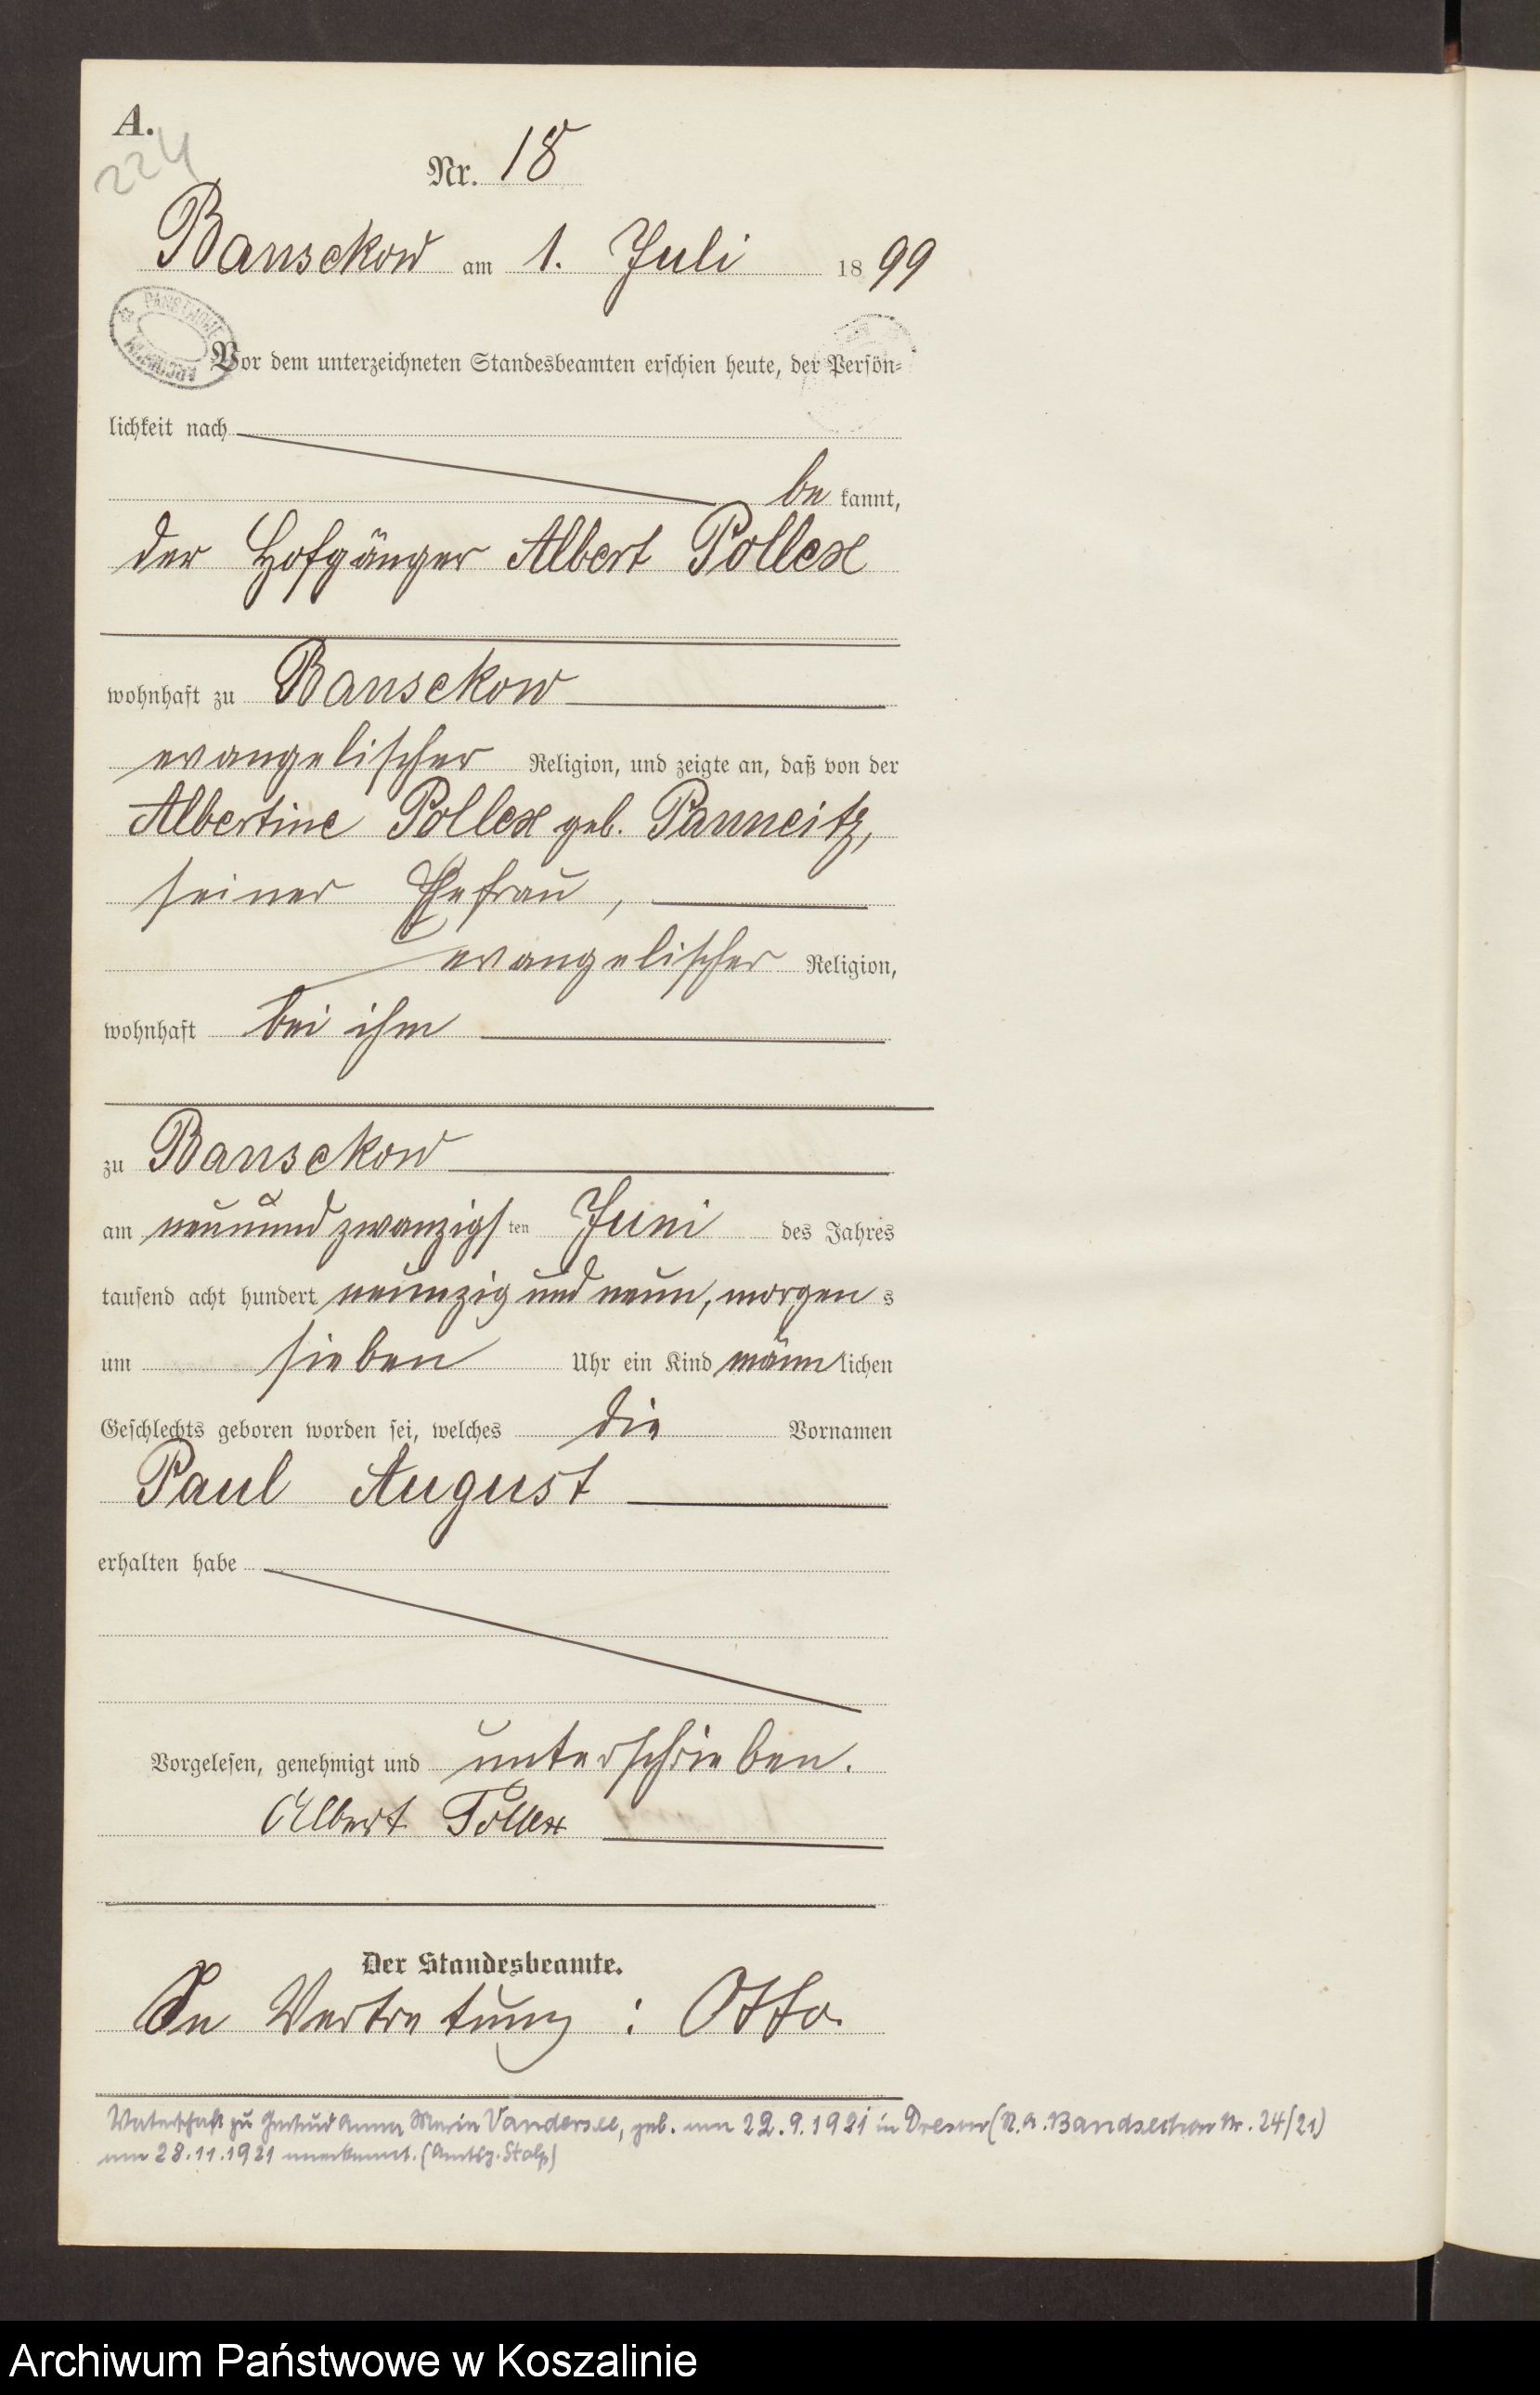 A.
224
Nr. 18
Bansekow am 1. Juli 1899
PAŃSTWOWE ARCHIWUM
Vor dem unterzeichneten Standesbeamten erschien heute, der Persön-
lichkeit nach
be kannt,
der Hofgänger Albert Pollex
wohnhaft zu Bansekow
evangelischer Religion, und zeigte an, daß von der
Albertine Pollex geb. Panneitz,
seiner Ehefrau,
evangelischer Religion,
wohnhaft bei ihm
zu Bansekow
am neunundzwanzigsten Juni des Jahres
tausend acht hundert neunzig und neun, morgens
um sieben Uhr ein Kind männlichen
Geschlechts geboren worden sei, welches die Vornamen
Paul August
erhalten habe
Vorgelesen, genehmigt und unterschrieben.
Albert Pollex
Der Standesbeamte.
In Vertretung: Otto.
Vaterschaft zu Gertrud Anna Maria Vandersee, geb. am 22.9.1921 in (St. A. Bandsechow Nr. 24/21)
am 28.11.1921 anerkannt. (Amtsg. Stolp)
Archiwum Państwowe w Koszalinie